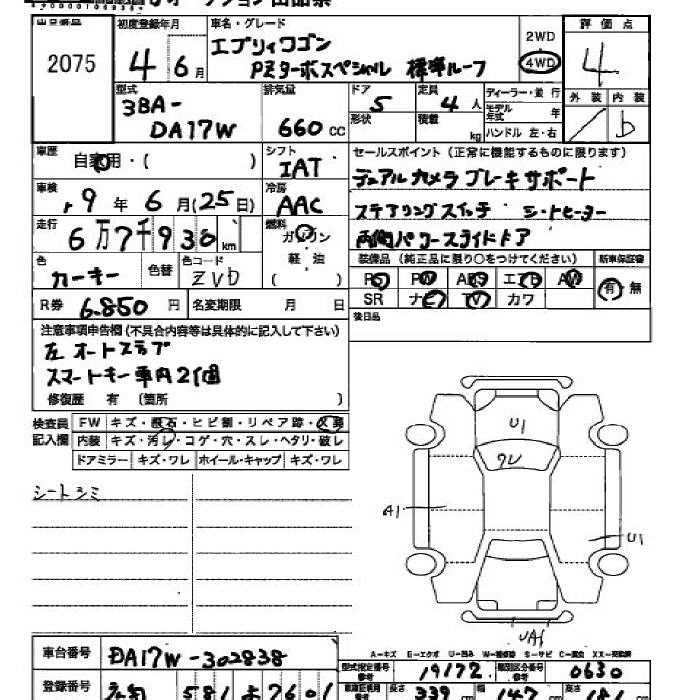 出品番号 初度登録年月 車名・グレード 2WD 評価点
2075 4 6月 エブリィワゴン 4WD 4
PZターボスペシャル 標準ルーフ
型式 排気量 ドア 定員 ディーラー・並行 外装 内装
3BA- 5 4人 モデル年式 年 b
DA17W 660cc 形状 積載 kg ハンドル 左・右
車歴 自家用・( ) シフト セールスポイント (正常に機能するものに限ります)
IAT デュアルカメラブレーキサポート
車検 9年6月(25日) 冷房 AAC ステアリングスイッチ シートヒーター
走行 6万7千930km 燃料 ガソリン 両側パワースライドドア
軽油 装備品 (純正品に限り○をつけてください) 新車保証書
色 カーキー 色替 色コード ZVD PS PW ABS エアB AW 有・無
SR ナビ TV カワ
R券 6.850円 名変期限 月 日 後日品
注意事項申告欄(不具合内容等は具体的に記入して下さい)
左オートステップ
スマートキー車内2個
修復歴 有 (箇所 )
検査員記入欄 FW キズ・飛石・ヒビ割・リペア跡・
内装 キズ・汚レ・コゲ・穴・スレ・ヘタリ・破レ
ドアミラー キズ・ワレ ホイール・キャップ キズ・ワレ
シートシミ
U1
A1
U1
UA1
A=キズ E=エクボ U=凹み
車台番号 DA17W-302838
型式指定番号 19172 類別区分番号 0630
登録番号 581 2601
長さ 339 幅 147 高さ